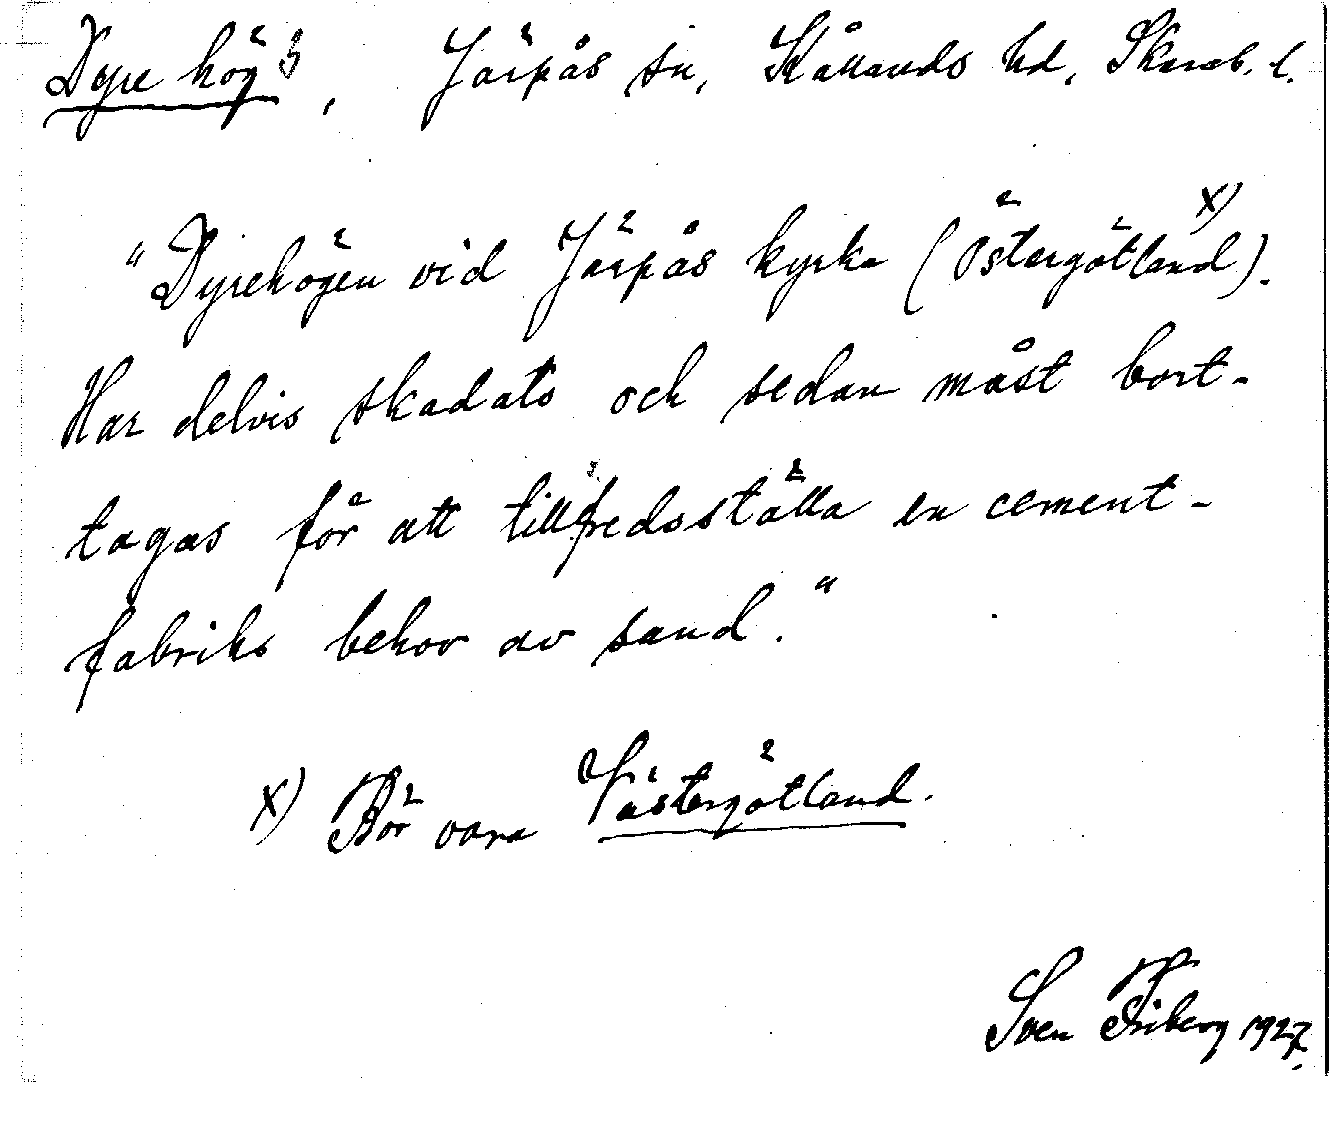 Dyre hög, Järpås sn, Kållands hd, Skarab. l.
"Dyrehögen vid Järpås kyrka (Östergötland x)).
Har delvis skadats och sedan måst bort-
tagas för att tillfredsställa en cement-
fabriks behov av sand."
x) Bör vara Västergötland.
Sven Friberg 1927.